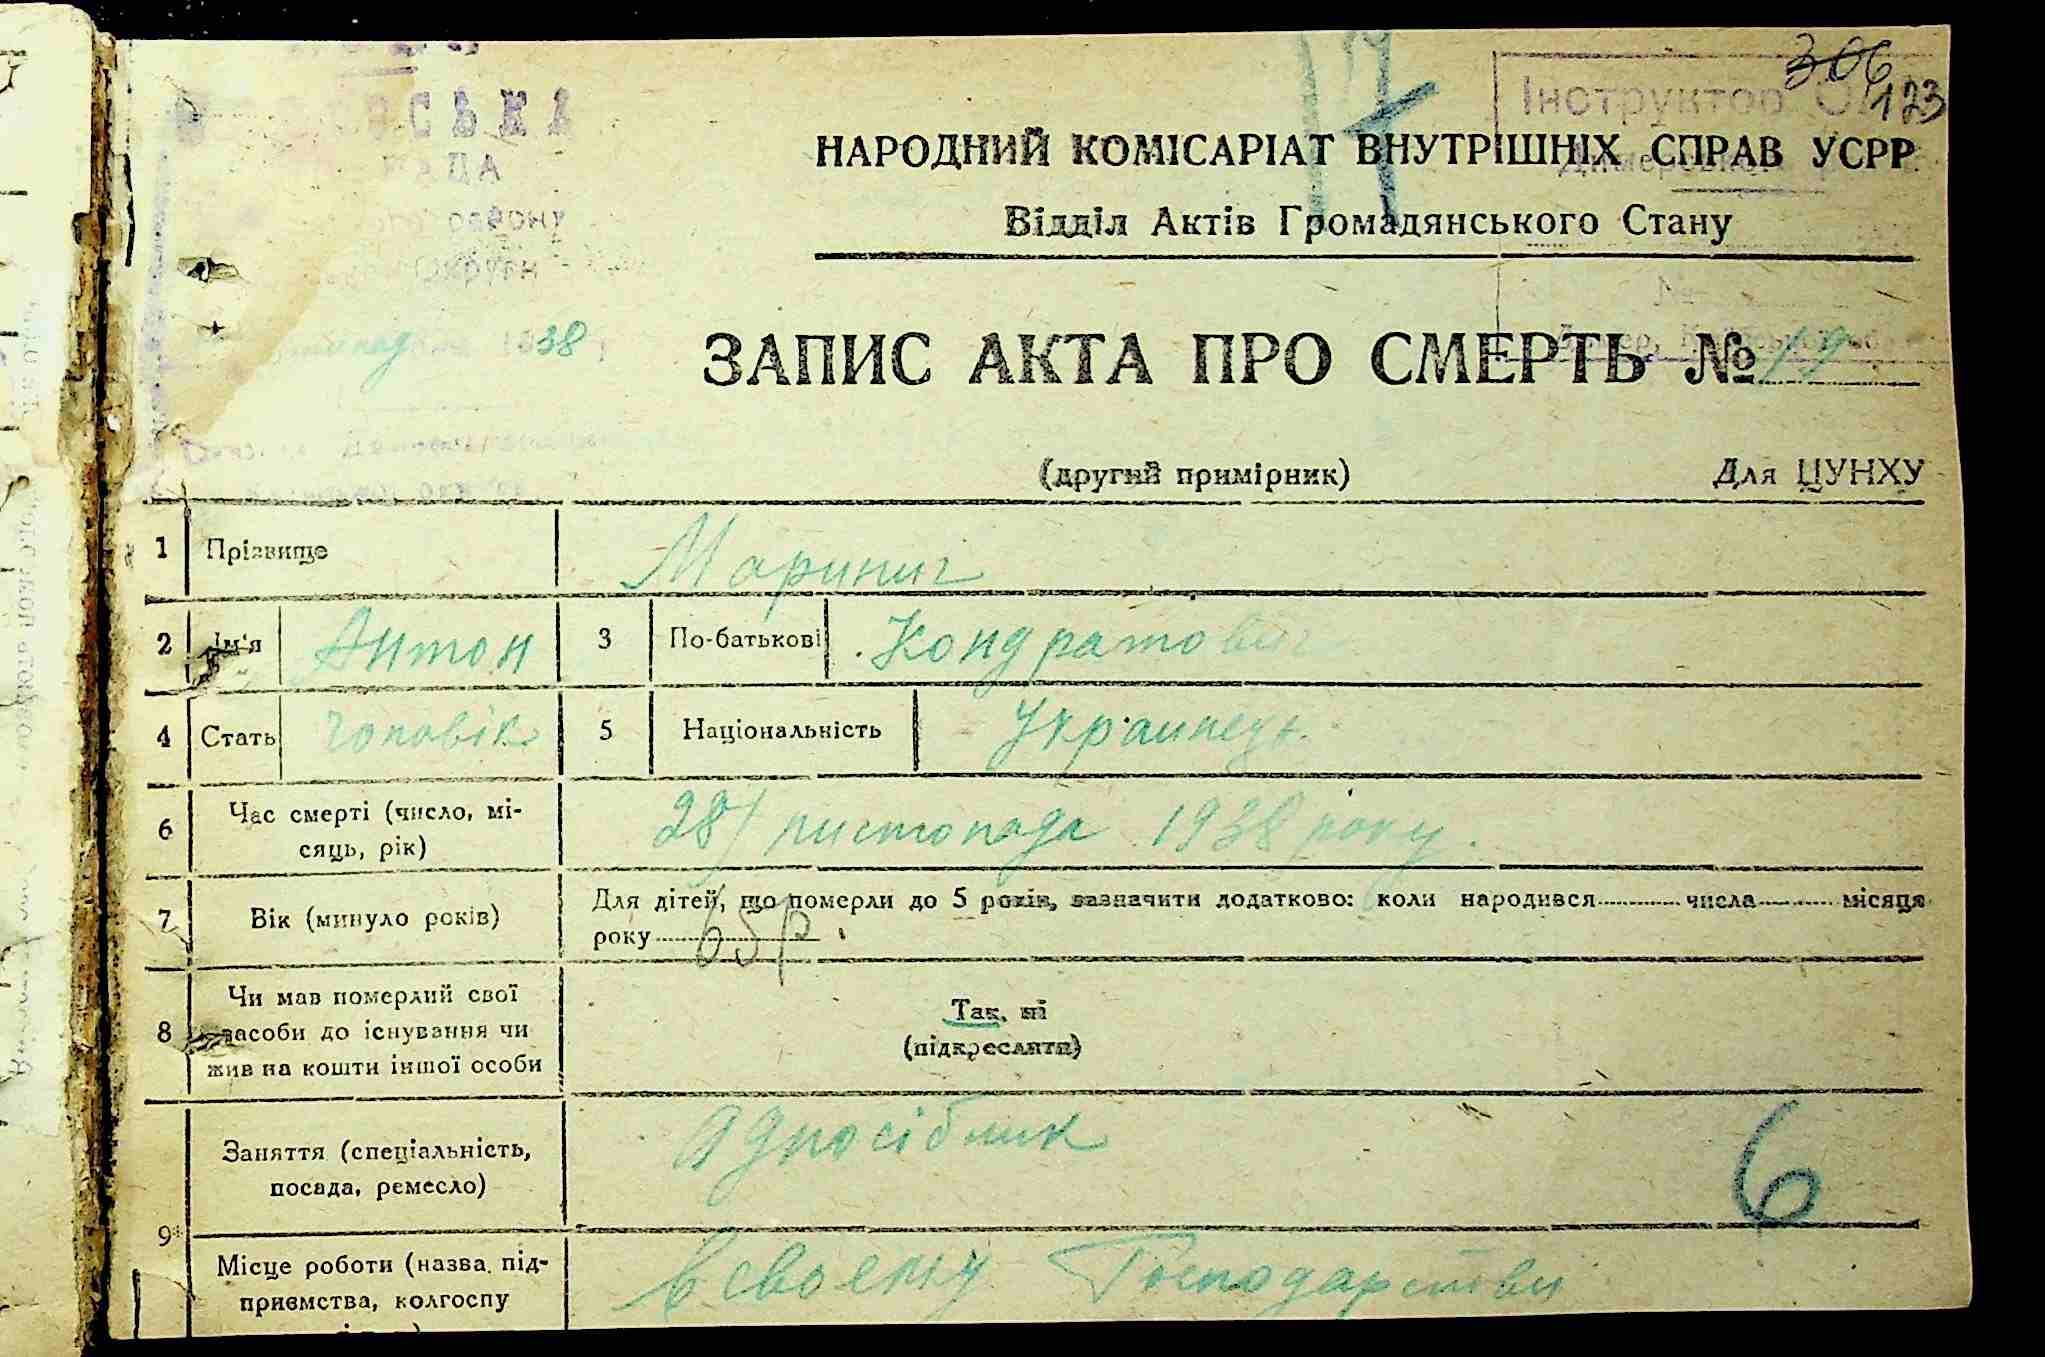 306
123
17
Інструктор
СЬКА
РАДА
району
Округи
1938 р
НАРОДНИЙ КОМІСАРІАТ ВНУТРІШНІХ СПРАВ УСРР
Відділ Актів Громадянського Стану
ЗАПИС АКТА ПРО СМЕРТЬ № 19
(другий примірник) Для ЦУНХУ
1 Прізвище Маринич
2 Ім'я Антон 3 По-батькові Кондратович
4 Стать чоловік 5 Національність Украинець
6 Час смерті (число, мі-
сяць, рік) 28/ листопада 1938 року.
7 Вік (минуло років) Для дітей, що померли до 5 років, зазначити додатково: коли народився числа місяця
року 65 р.
8 Чи мав померлий свої
засоби до існування чи
жив на кошти іншої особи
Так, ні
(підкреслити)
9 Заняття (спеціальність,
посада, ремесло) односібник
6
Місце роботи (назва під-
приємства, колгоспу
в своему Господарстви